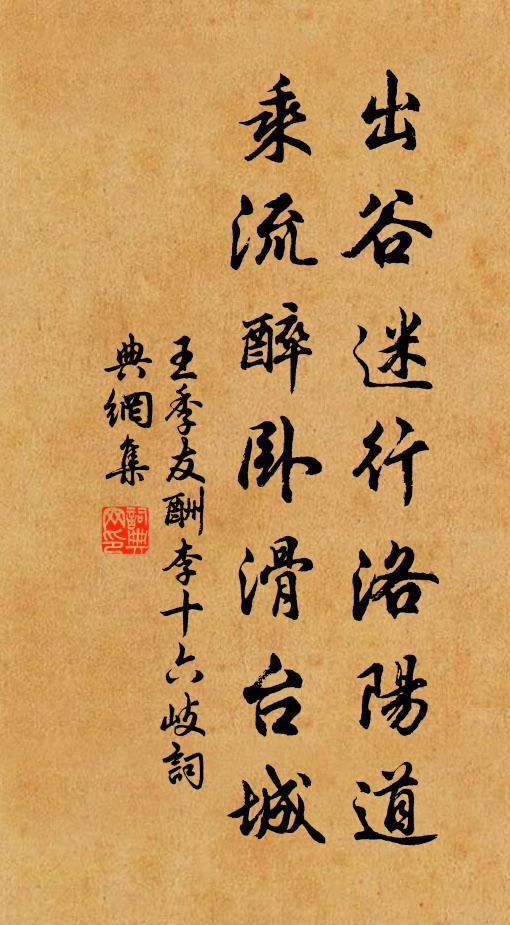 出谷迷行洛陽道
乘流醉卧滑台城
王季友酬李十六岐詞
典網集
詞典網印